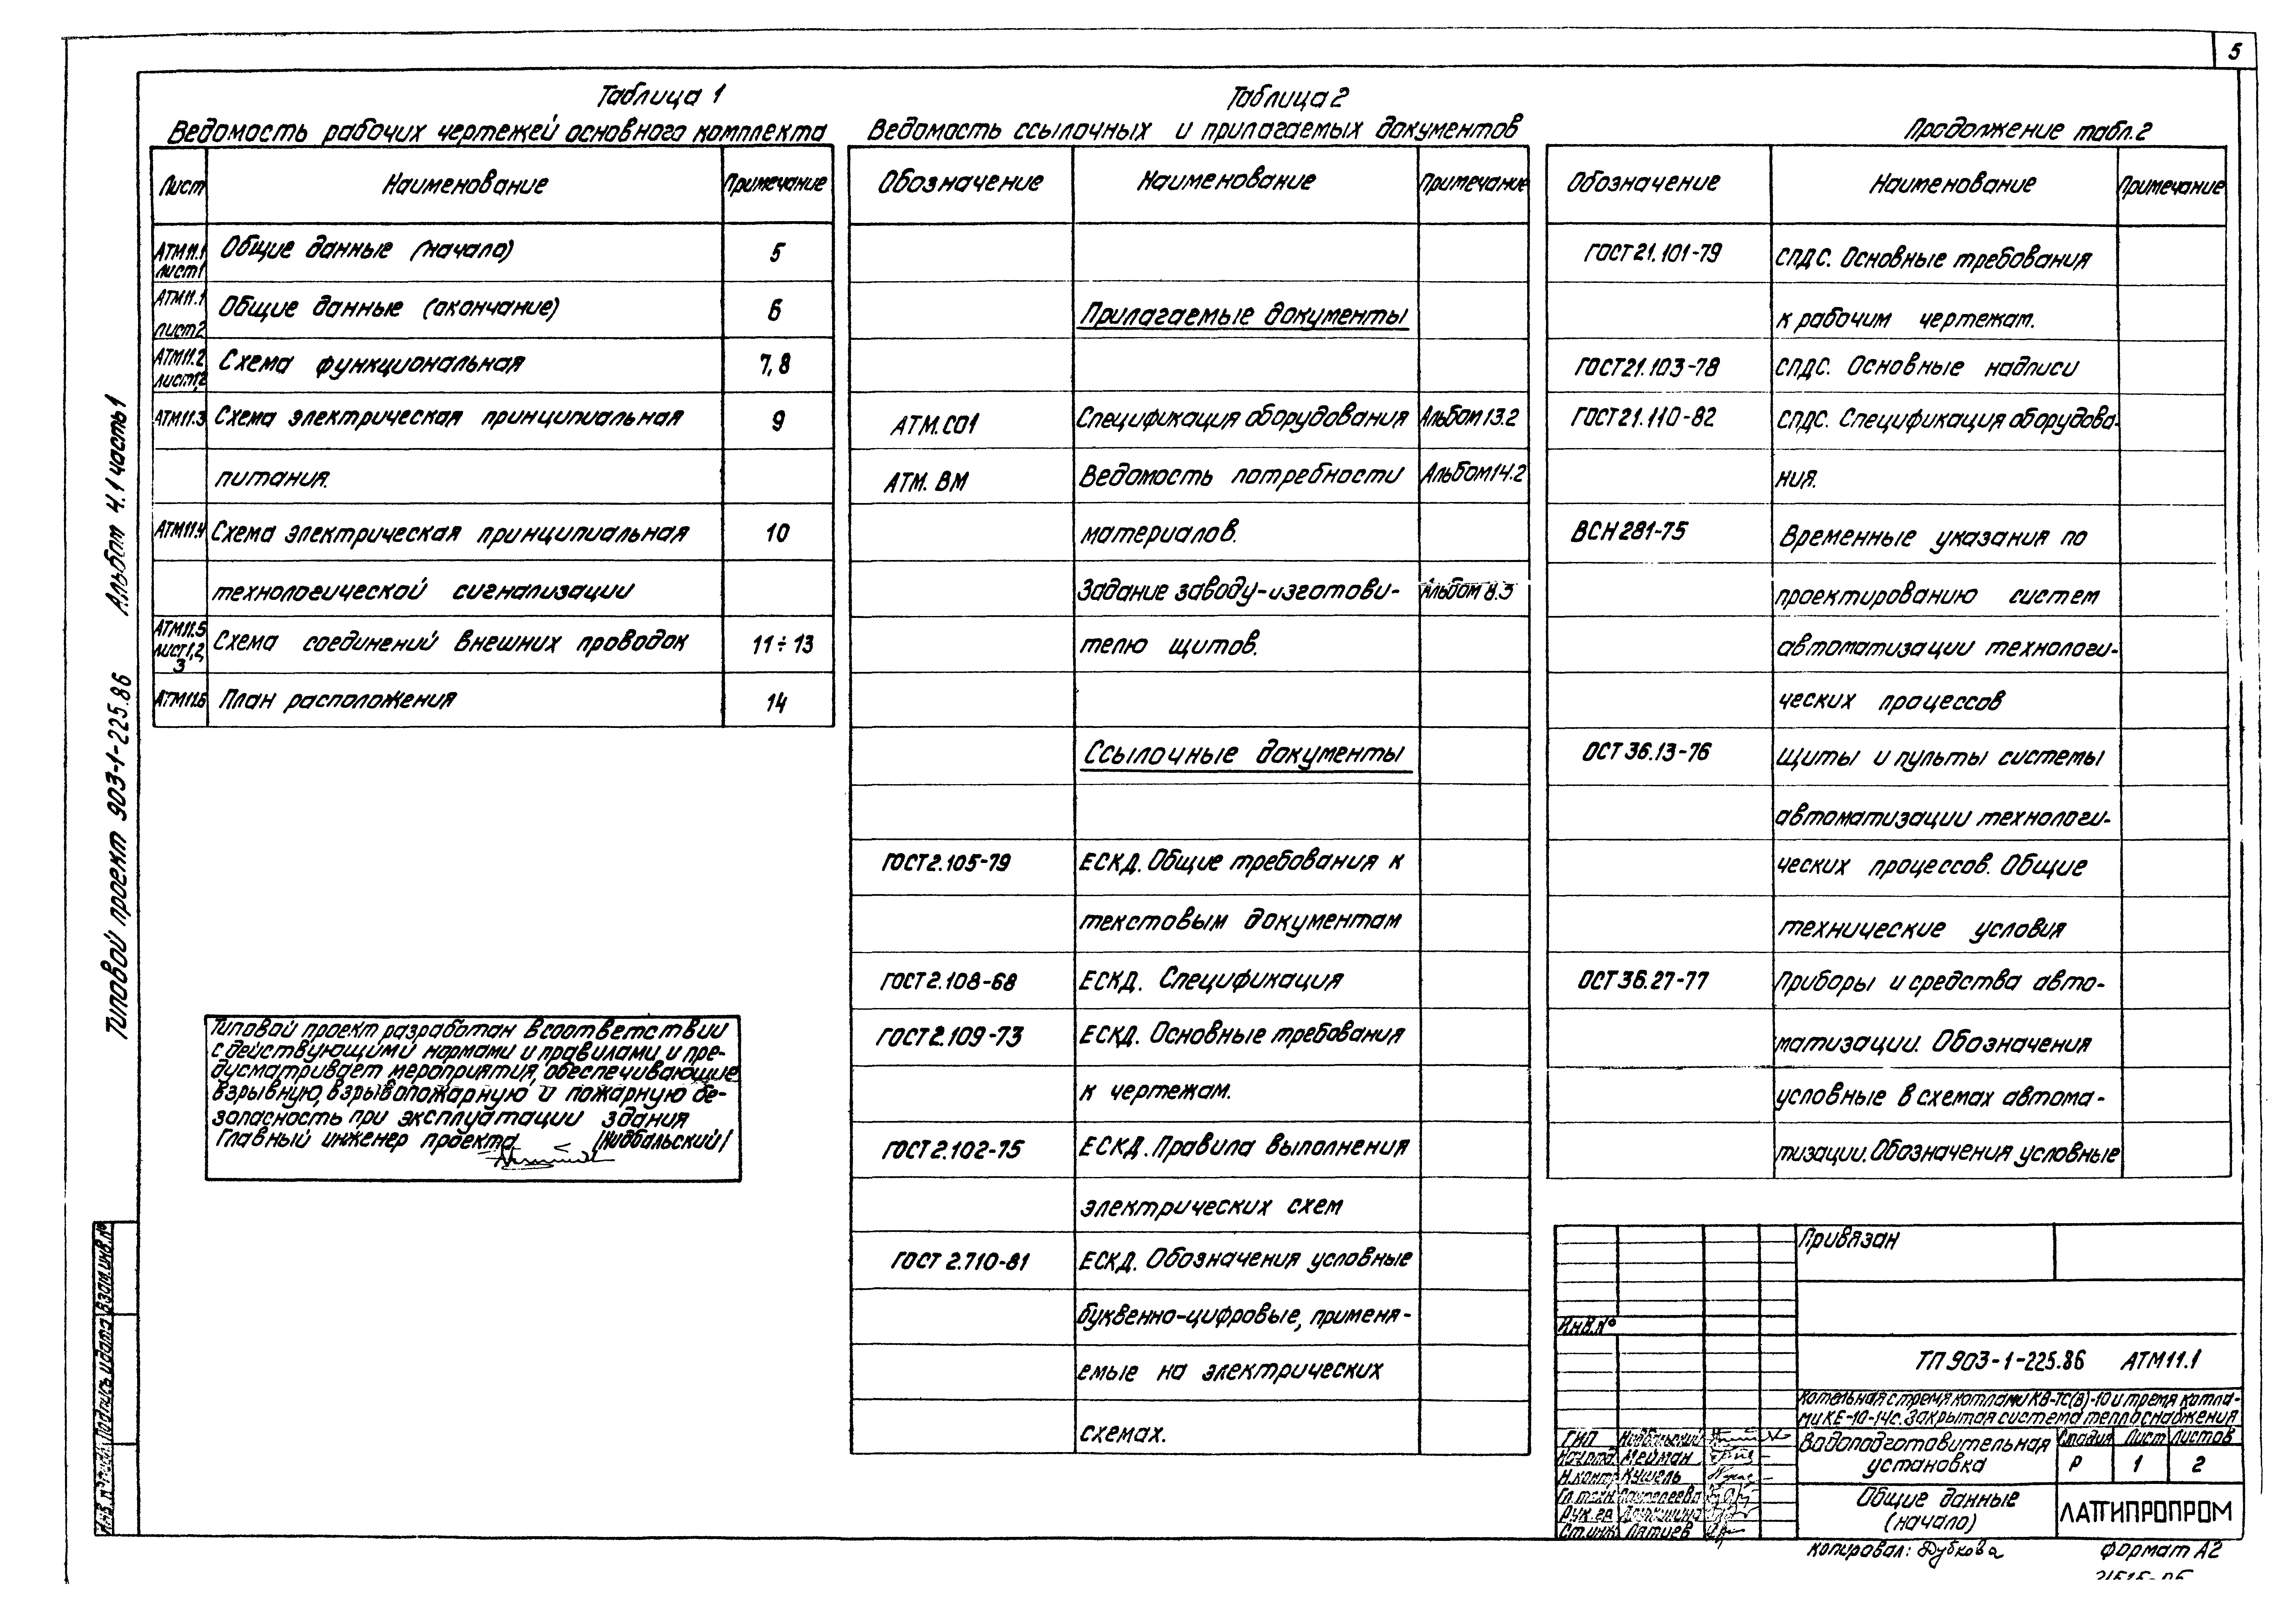 5
Таблица 1
Ведомость рабочих чертежей основного комплекта
Лист Наименование Примечание
АТМ11.1 лист1 Общие данные (начало) 5
АТМ11.1 лист2 Общие данные (окончание) 6
АТМ11.2 лист1,2 Схема функциональная 7,8
АТМ11.3 Схема электрическая принципиальная 9
питания.
АТМ11.4 Схема электрическая принципиальная 10
технологической сигнализации
АТМ11.5 лист1,2,3 Схема соединений внешних проводок 11÷13
АТМ11.6 План расположения 14
Типовой проект разработан в соответствии
с действующими нормами и правилами и пре-
дусматривает мероприятия, обеспечивающие
взрывную, взрывопожарную и пожарную бе-
зопасность при эксплуатации здания
Главный инженер проекта /Нидбальский/
Таблица 2
Ведомость ссылочных и прилагаемых документов
Обозначение Наименование Примечание
Прилагаемые документы
АТМ.СО1 Спецификация оборудования Альбом 13.2
АТМ. ВМ Ведомость потребности Альбом 14.2
материалов.
Задание заводу-изготови- Альбом 8.3
телю щитов.
Ссылочные документы
ГОСТ 2.105-79 ЕСКД. Общие требования к
текстовым документам
ГОСТ 2.108-68 ЕСКД. Спецификация
ГОСТ 2.109-73 ЕСКД. Основные требования
к чертежам.
ГОСТ 2.102-75 ЕСКД. Правила выполнения
электрических схем
ГОСТ 2.710-81 ЕСКД. Обозначения условные
буквенно-цифровые, применя-
емые на электрических
схемах.
Продолжение табл.2
Обозначение Наименование Примечание
ГОСТ 21.101-79 СПДС. Основные требования
к рабочим чертежам.
ГОСТ 21.103-78 СПДС. Основные надписи
ГОСТ 21.110-82 СПДС. Спецификация оборудова-
ния.
ВСН 281-75 Временные указания по
проектированию систем
автоматизации технологи-
ческих процессов
ОСТ 36.13-76 Щиты и пульты системы
автоматизации технологи-
ческих процессов. Общие
технические условия
ОСТ 36.27-77 Приборы и средства авто-
матизации. Обозначения
условные в схемах автома-
тизации. Обозначения условные
Привязан
Инв.№
ТП 903-1-225.86 АТМ11.1
Котельная с тремя котлами КВ-ТС(В)-10 и тремя котла-
ми КЕ-10-14с. Закрытая система теплоснабжения
ГИП Нидбальский
Нач.отд. Мейман
Н.контр. Кушель
Гл.техн.
Рук.гр.
Ст.инж. Лятиев
Водоподготовительная
установка
Стадия Лист Листов
Р 1 2
Общие данные
(начало)
ЛАТГИПРОПРОМ
Копировал: Дубкова Формат А2
Типовой проект 903-1-225.86 Альбом 4.1 часть 1
Инв.№ подл. Подпись и дата Взам.инв.№